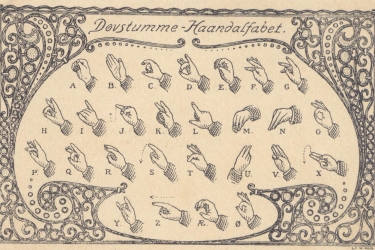 Døvstumme-Haandalfabet.
A B. C D E. F G.
H I J. K L M. N O
P Q R. S T U. V. X
Y. Z Æ. Ø